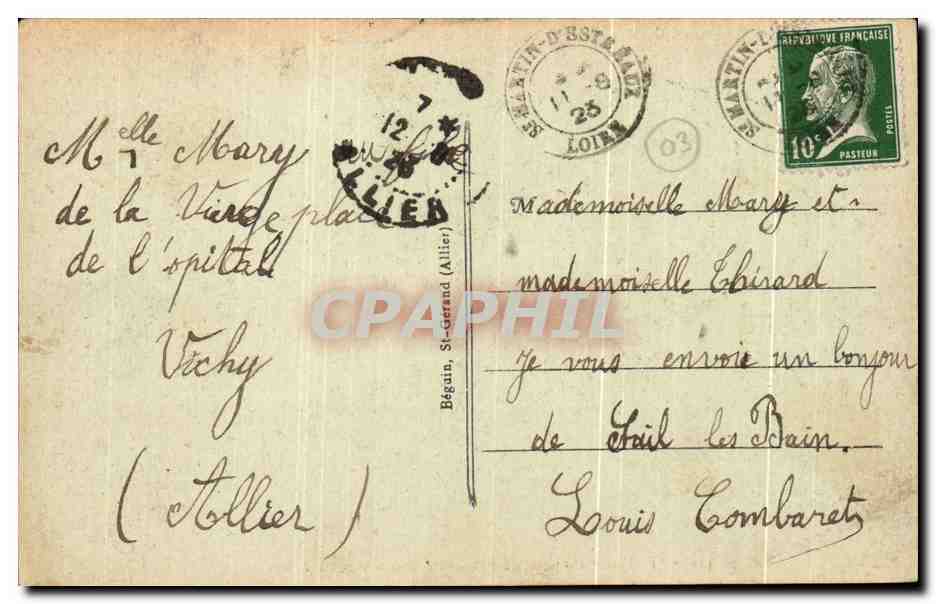 Melle Mary
de la Vierge place
de l'opital
Vichy
(Allier)
12
ALLIER
Béguin, St-Gérand (Allier)
ST MARTIN-D'ESTRÉAUX
11 -8
23
LOIRE
03
ST MARTIN-D
RÉPUBLIQUE FRANÇAISE
POSTES
10c
PASTEUR
Mademoiselle Mary et
mademoiselle Thirard
Je vous envoie un bonjour
de Sail les Bain.
Louis Combaret
CPAPHIL